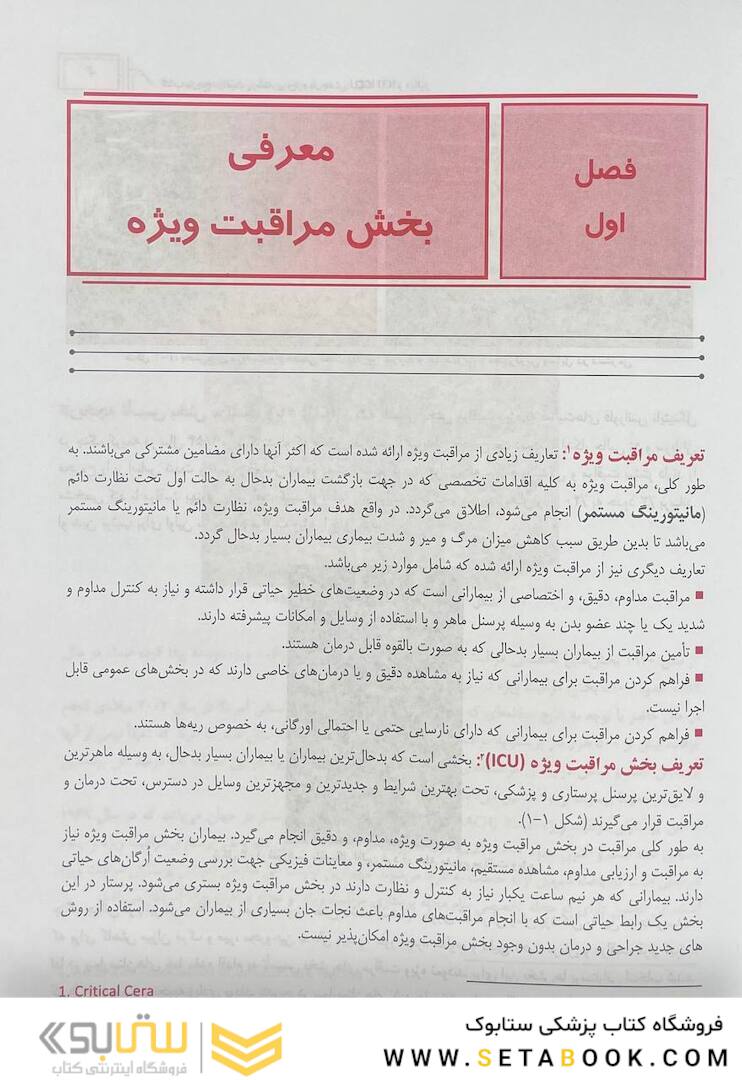 فصل
اول
معرفی
بخش مراقبت ویژه
تعریف مراقبت ویژه¹: تعاریف زیادی از مراقبت ویژه ارائه شده است که اکثر آنها دارای مضامین مشترکی می‌باشند. به
طور کلی، مراقبت ویژه به کلیه اقدامات تخصصی که در جهت بازگشت بیماران بدحال به حالت اول تحت نظارت دائم
(مانیتورینگ مستمر) انجام می‌شود، اطلاق می‌گردد. در واقع هدف مراقبت ویژه، نظارت دائم یا مانیتورینگ مستمر
می‌باشد تا بدین طریق سبب کاهش میزان مرگ و میر و شدت بیماری بیماران بسیار بدحال گردد.
تعاریف دیگری نیز از مراقبت ویژه ارائه شده که شامل موارد زیر می‌باشد.
■ مراقبت مداوم، دقیق، و اختصاصی از بیمارانی است که در وضعیت‌های خطیر حیاتی قرار داشته و نیاز به کنترل مداوم و
شدید یک یا چند عضو بدن به وسیله پرسنل ماهر و با استفاده از وسایل و امکانات پیشرفته دارند.
■ تأمین مراقبت از بیماران بسیار بدحالی که به صورت بالقوه قابل درمان هستند.
■ فراهم کردن مراقبت برای بیمارانی که نیاز به مشاهده دقیق و یا درمان‌های خاصی دارند که در بخش‌های عمومی قابل
اجرا نیست.
■ فراهم کردن مراقبت برای بیمارانی که دارای نارسایی حتمی یا احتمالی اورگانی، به خصوص ریه‌ها هستند.
تعریف بخش مراقبت ویژه (ICU)²: بخشی است که بدحال‌ترین بیماران یا بیماران بسیار بدحال، به وسیله ماهرترین
و لایق‌ترین پرسنل پرستاری و پزشکی، تحت بهترین شرایط و جدیدترین و مجهزترین وسایل در دسترس، تحت درمان و
مراقبت قرار می‌گیرند (شکل ۱-۱).
به طور کلی مراقبت در بخش مراقبت ویژه به صورت ویژه، مداوم، و دقیق انجام می‌گیرد. بیماران بخش مراقبت ویژه نیاز
به مراقبت و ارزیابی مداوم، مشاهده مستقیم، مانیتورینگ مستمر، و معاینات فیزیکی جهت بررسی وضعیت اُرگان‌های حیاتی
دارند. بیمارانی که هر نیم ساعت یکبار نیاز به کنترل و نظارت دارند در بخش مراقبت ویژه بستری می‌شود. پرستار در این
بخش یک رابط حیاتی است که با انجام مراقبت‌های مداوم باعث نجات جان بسیاری از بیماران می‌شود. استفاده از روش
های جدید جراحی و درمان بدون وجود بخش مراقبت ویژه امکان‌پذیر نیست.
1. Critical Cera
فروشگاه کتاب پزشکی ستابوک
WWW.SETABOOK.COM
ستابوک
فروشگاه اینترنتی کتاب